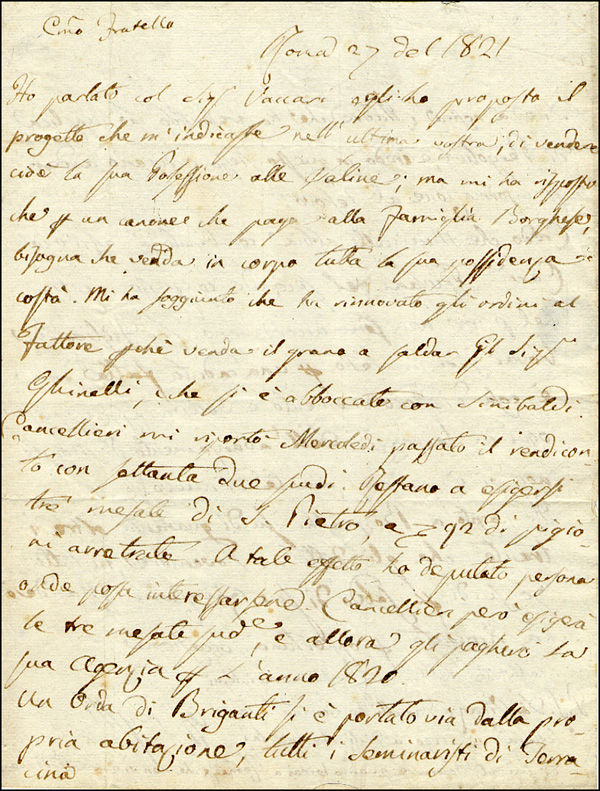 Cmo Fratello
Roma 27 del 1821
Ho parlato col Sigr Vaccari egli ho proposto il
progetto che m'indicaste nell'ultima vostra, di vendere
cioè la sua Possessione alle Saline; ma mi ha risposto
che un canone che paga alla Famiglia Borghese,
bisogna che venda in corpo tutta la sua possidenza
costà. Mi ha soggiunto che ha rinnovato gli ordini al
Fattore pchè venda il grano a saldar Il Sigr
Ghinelli, che si è abboccato con Sinibaldi.
Cancellieri mi riportò Mercoledì passato il rendicon-
to con settanta due scudi. Restano a esigersi
tre mesate di S. Pietro, e 92 di pigio-
ni arretrate. A tale effetto ho deputato persona
onde possa interessarsene. Cancellieri però esigerà
le tre mesate sudde, e allora gli pagherò la
sua Agenzia L'anno 1820.
Un Orda di Briganti si è portato via dalla pro-
pria abitazione, tutti i Seminaristi di Terra-
cina